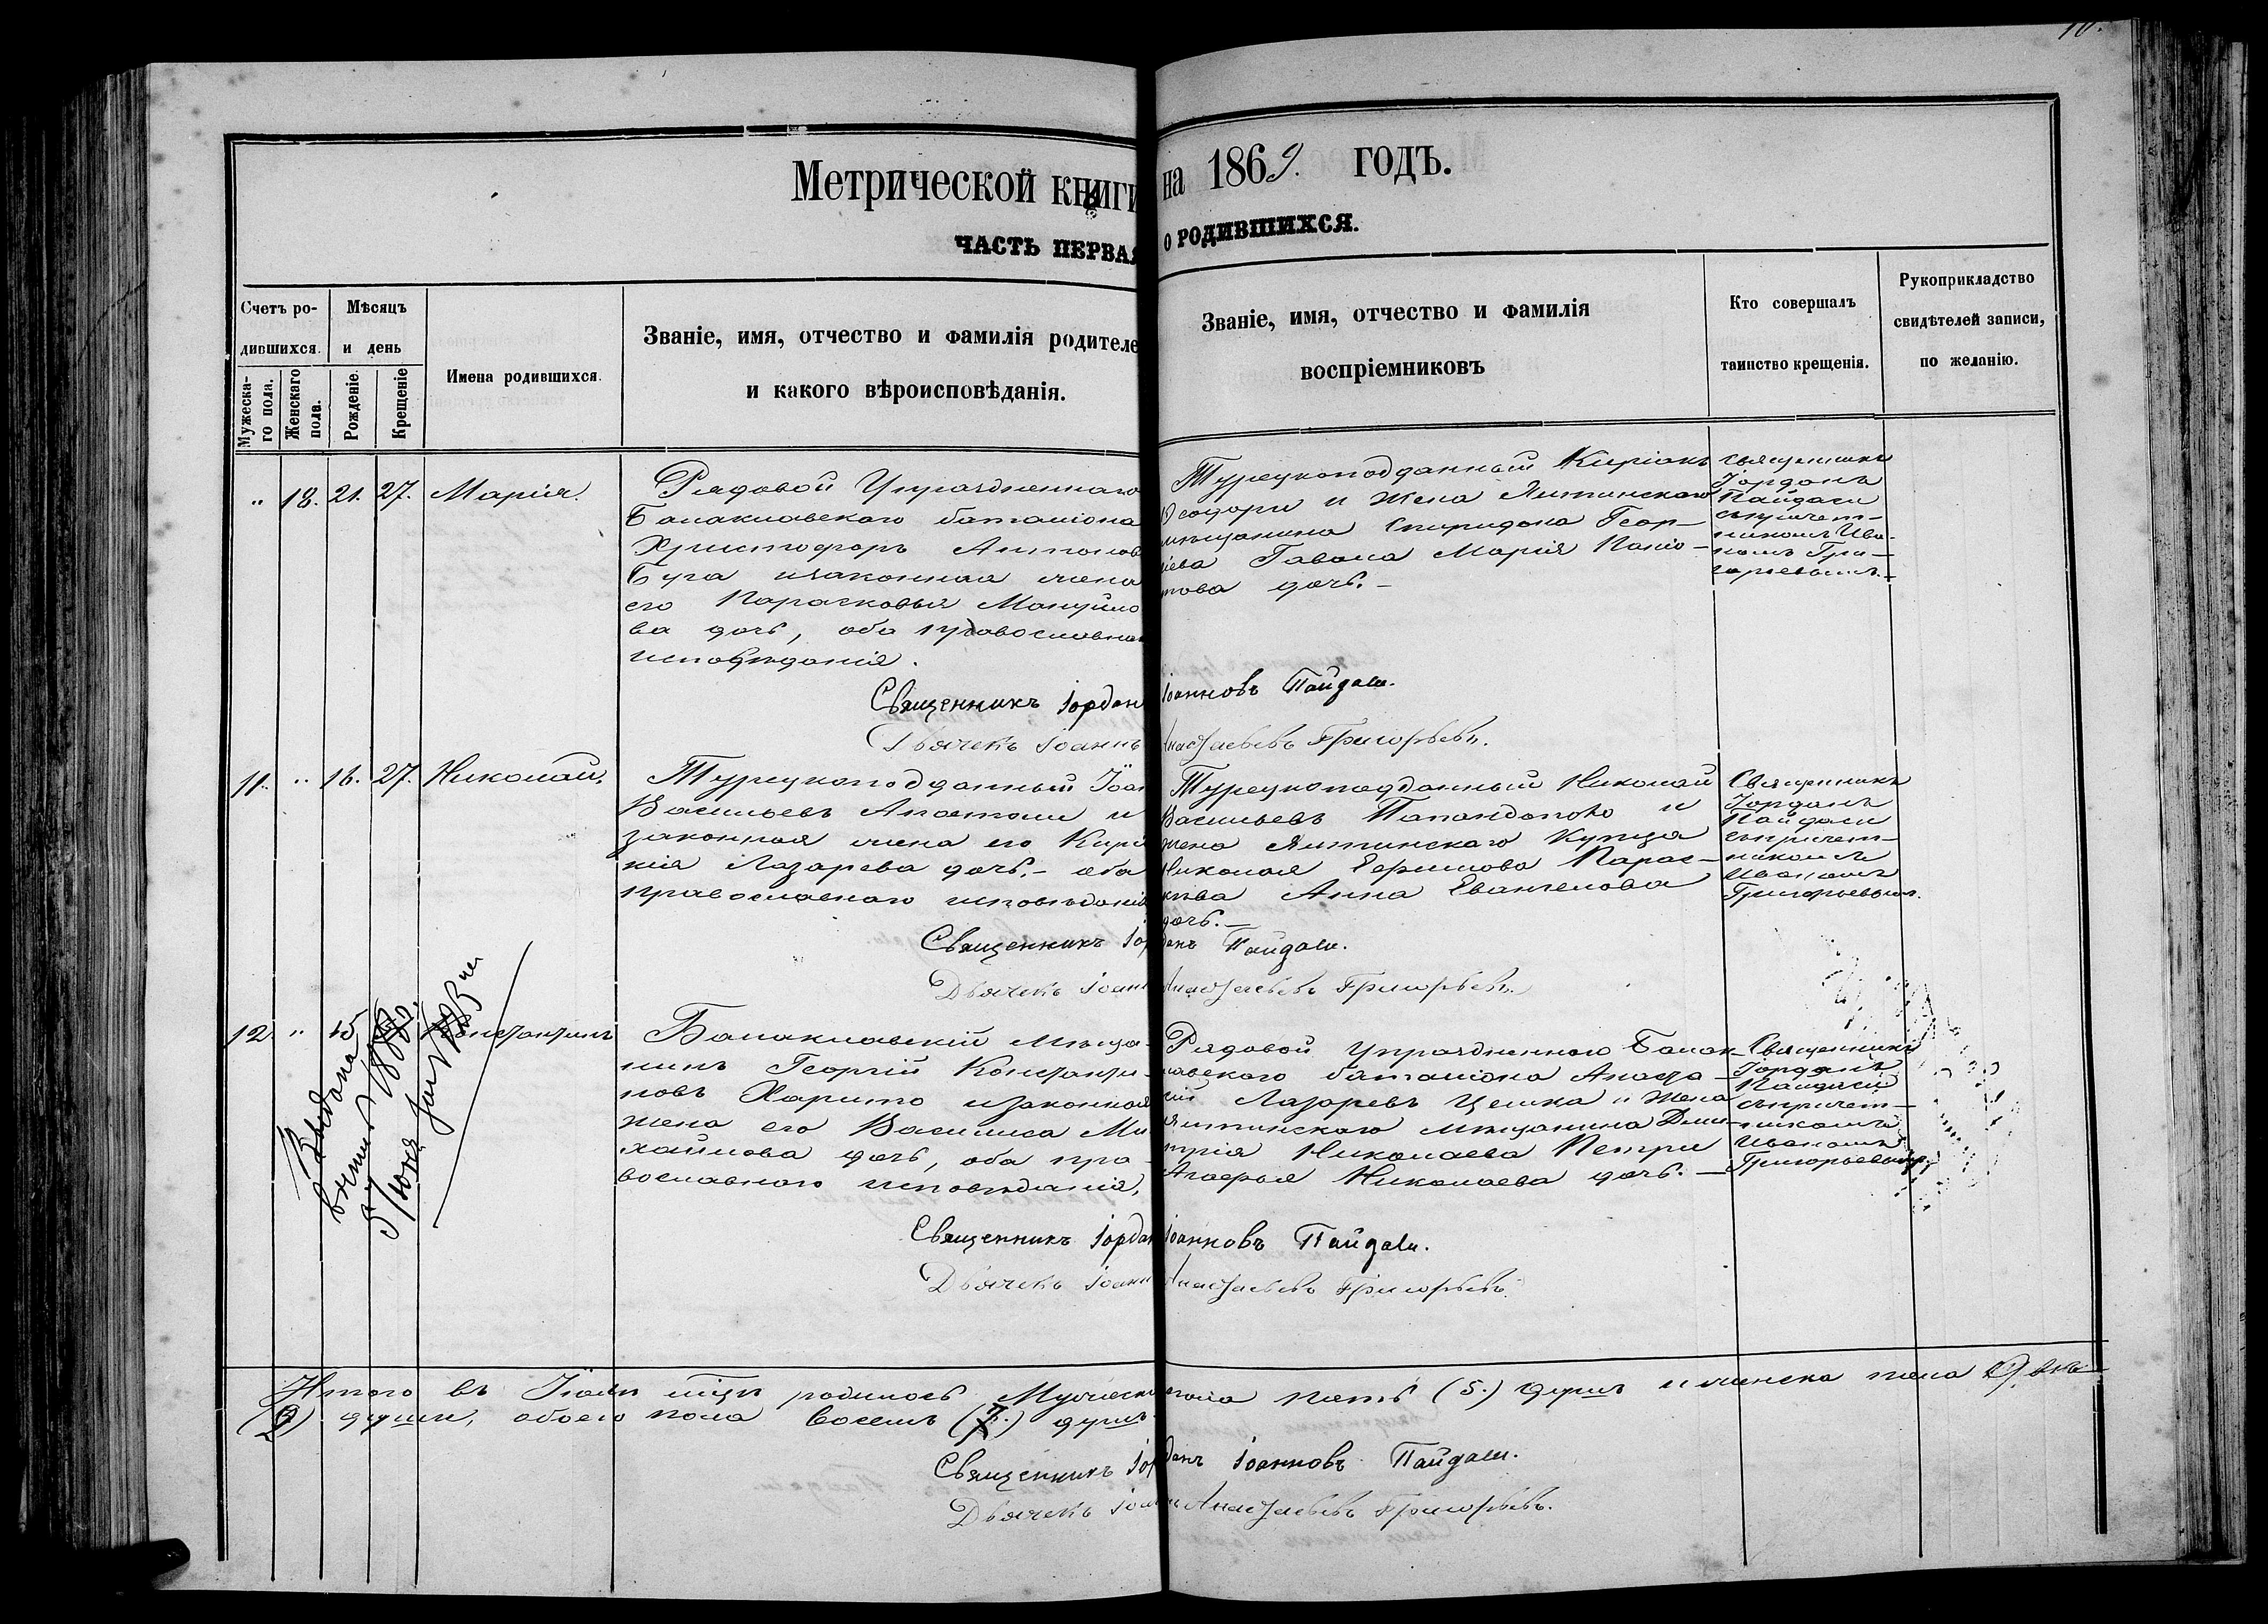 10.
Метрической книги на 1869. ГОДЪ.
ЧАСТЬ ПЕРВАЯ О РОДИВШИХСЯ.
Счетъ ро-
дившихся.
Мужеска-
го пола.
Женскаго
пола.
Мѣсяцъ
и день
Рожденіе.
Крещеніе
Имена родившихся.
Званіе, имя, отчество и фамилія родителе
и какого вѣроисповѣданія.
Званіе, имя, отчество и фамилія
воспріемниковъ
Кто совершалъ
таинство крещенія.
Рукоприкладство
свидѣтелей записи,
по желанію.
" 18. 21. 27. Марія.
Рядовой Упраздненнаго
Балаклавскаго баталіона
Христофоръ Антонов
его Парасковья Мануйло
ва дочь, оба православна
исповѣданія.
Турецкоподданный Киріакъ
Ѳеодори и Жена Ялтинскаго
мѣщанина Спиридона Геор-
гіева Гавала Марія
дочь.-
Священникъ
Іорданъ
Пайдаси
съпричет-
никомъ Ива-
номъ Гри-
горьевымъ.
Священникъ Іордан Іоанновъ Пайдаси.
Дьячекъ Іоаннъ Анастасьевъ Григорьевъ.
11. " 16. 27. Николай.
Турецкоподданный Іоан
Васильевъ Апостоли и
законная жена его Кирі
кія Лазарева дочь,- оба
православнаго исповѣданія
Турецкоподданный Николай
Васильевъ Папандополо и
жена Ялтинскаго Купца
Николая Ефимова Парас-
кева Анна Евангелова
дочь.-
Священникъ
Іорданъ
Пайдаси
съпричет-
никомъ
Иваномъ
Григорьевымъ.
Священникъ Іорданъ Пайдаси.
Дьячекъ Іоанн Анастасьевъ Григорьевъ.
12. " 15 Константинъ
Выдана
5 Іюня
Балаклавскій Мѣща-
нинъ Георгій Константи-
новъ Харито изаконная
жена его Василиса Ми
хайлова дочь, оба пра-
вославнаго исповѣданія,
Рядовой Упраздненнаго Балак-
лавскаго баталіона Анаста-
сій Лазаревъ Цешка и Жена
Ялтинскаго мѣщанина Дми-
трія Николаева Петри
Агафья Николаева дочь.-
Священникъ
Іорданъ
Пайдаси
съпричет-
никомъ
Иваномъ
Григорьевымъ
Священникъ Іордан Іоанновъ Пайдаси.
Дьячекъ Іоанн Анастасьевъ Григорьевъ.
Итого въ Іюлѣ мцѣ родилось Мужеска пола пять (5.) душъ и женска пола Двѣ
(2) души, обоего пола восемь (7.) душъ.
Священникъ Іорданъ Іоанновъ Пайдаси.
Дьячекъ Іоаннъ Анастасьевъ Григорьевъ.